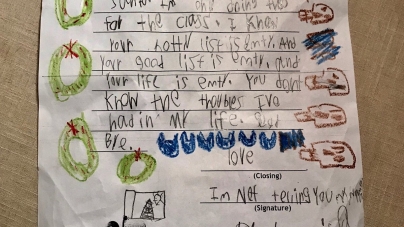 for the class. I Know
your notty list is emty. And
your good list is emty. And
Your life is emty. You dont
Know the troubles Ive
had in my life. Good
Bye.
love
(Closing)
Im Not telling you my name
(Signature)